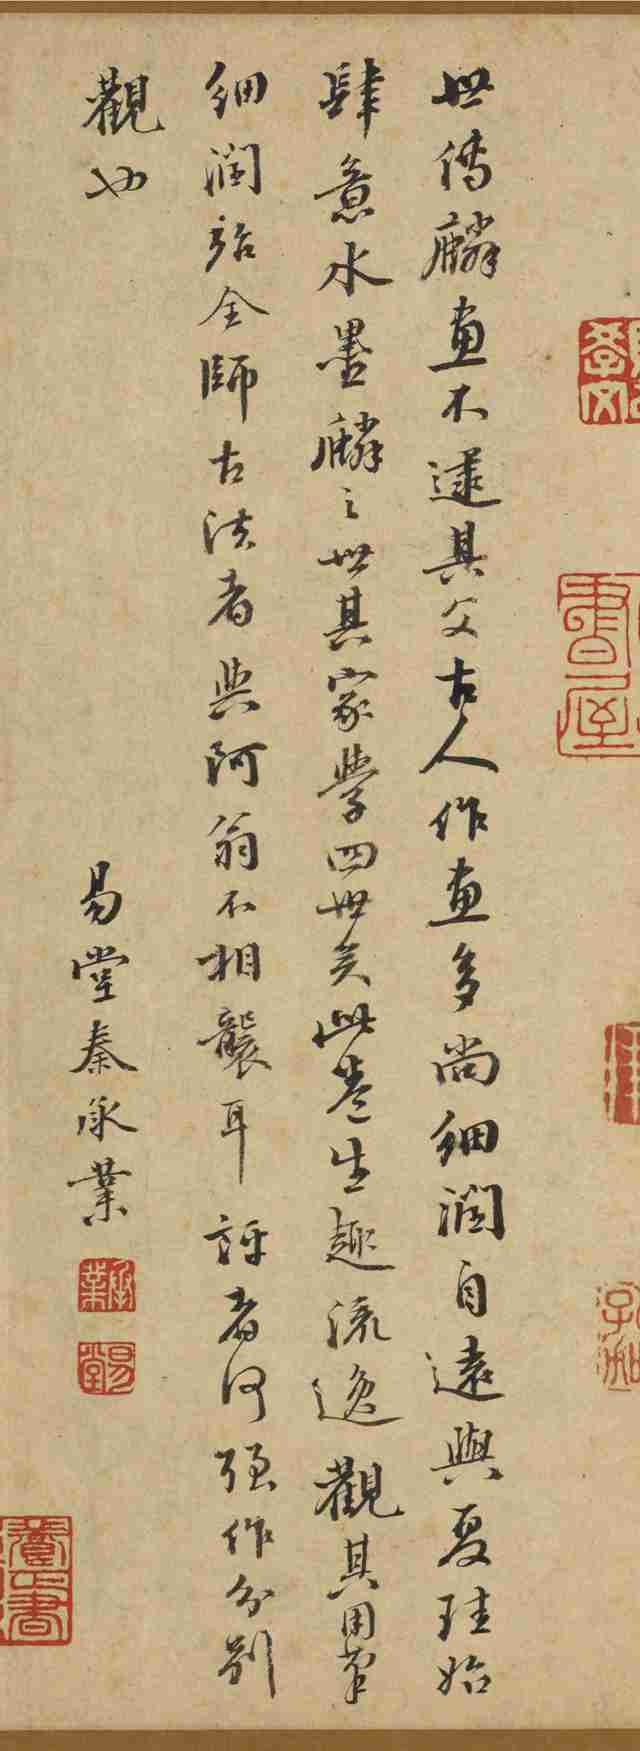 世傳麟畫不逮其父古人作畫多尚細潤自遠與夏珪始
肆意水墨麟之世其家學四世矣此卷生趣流逸觀其用筆
細潤殆全師古法者與阿翁不相襲耳評者何強作分別
觀也
易堂秦承業
承業
易堂
書屋
養正書